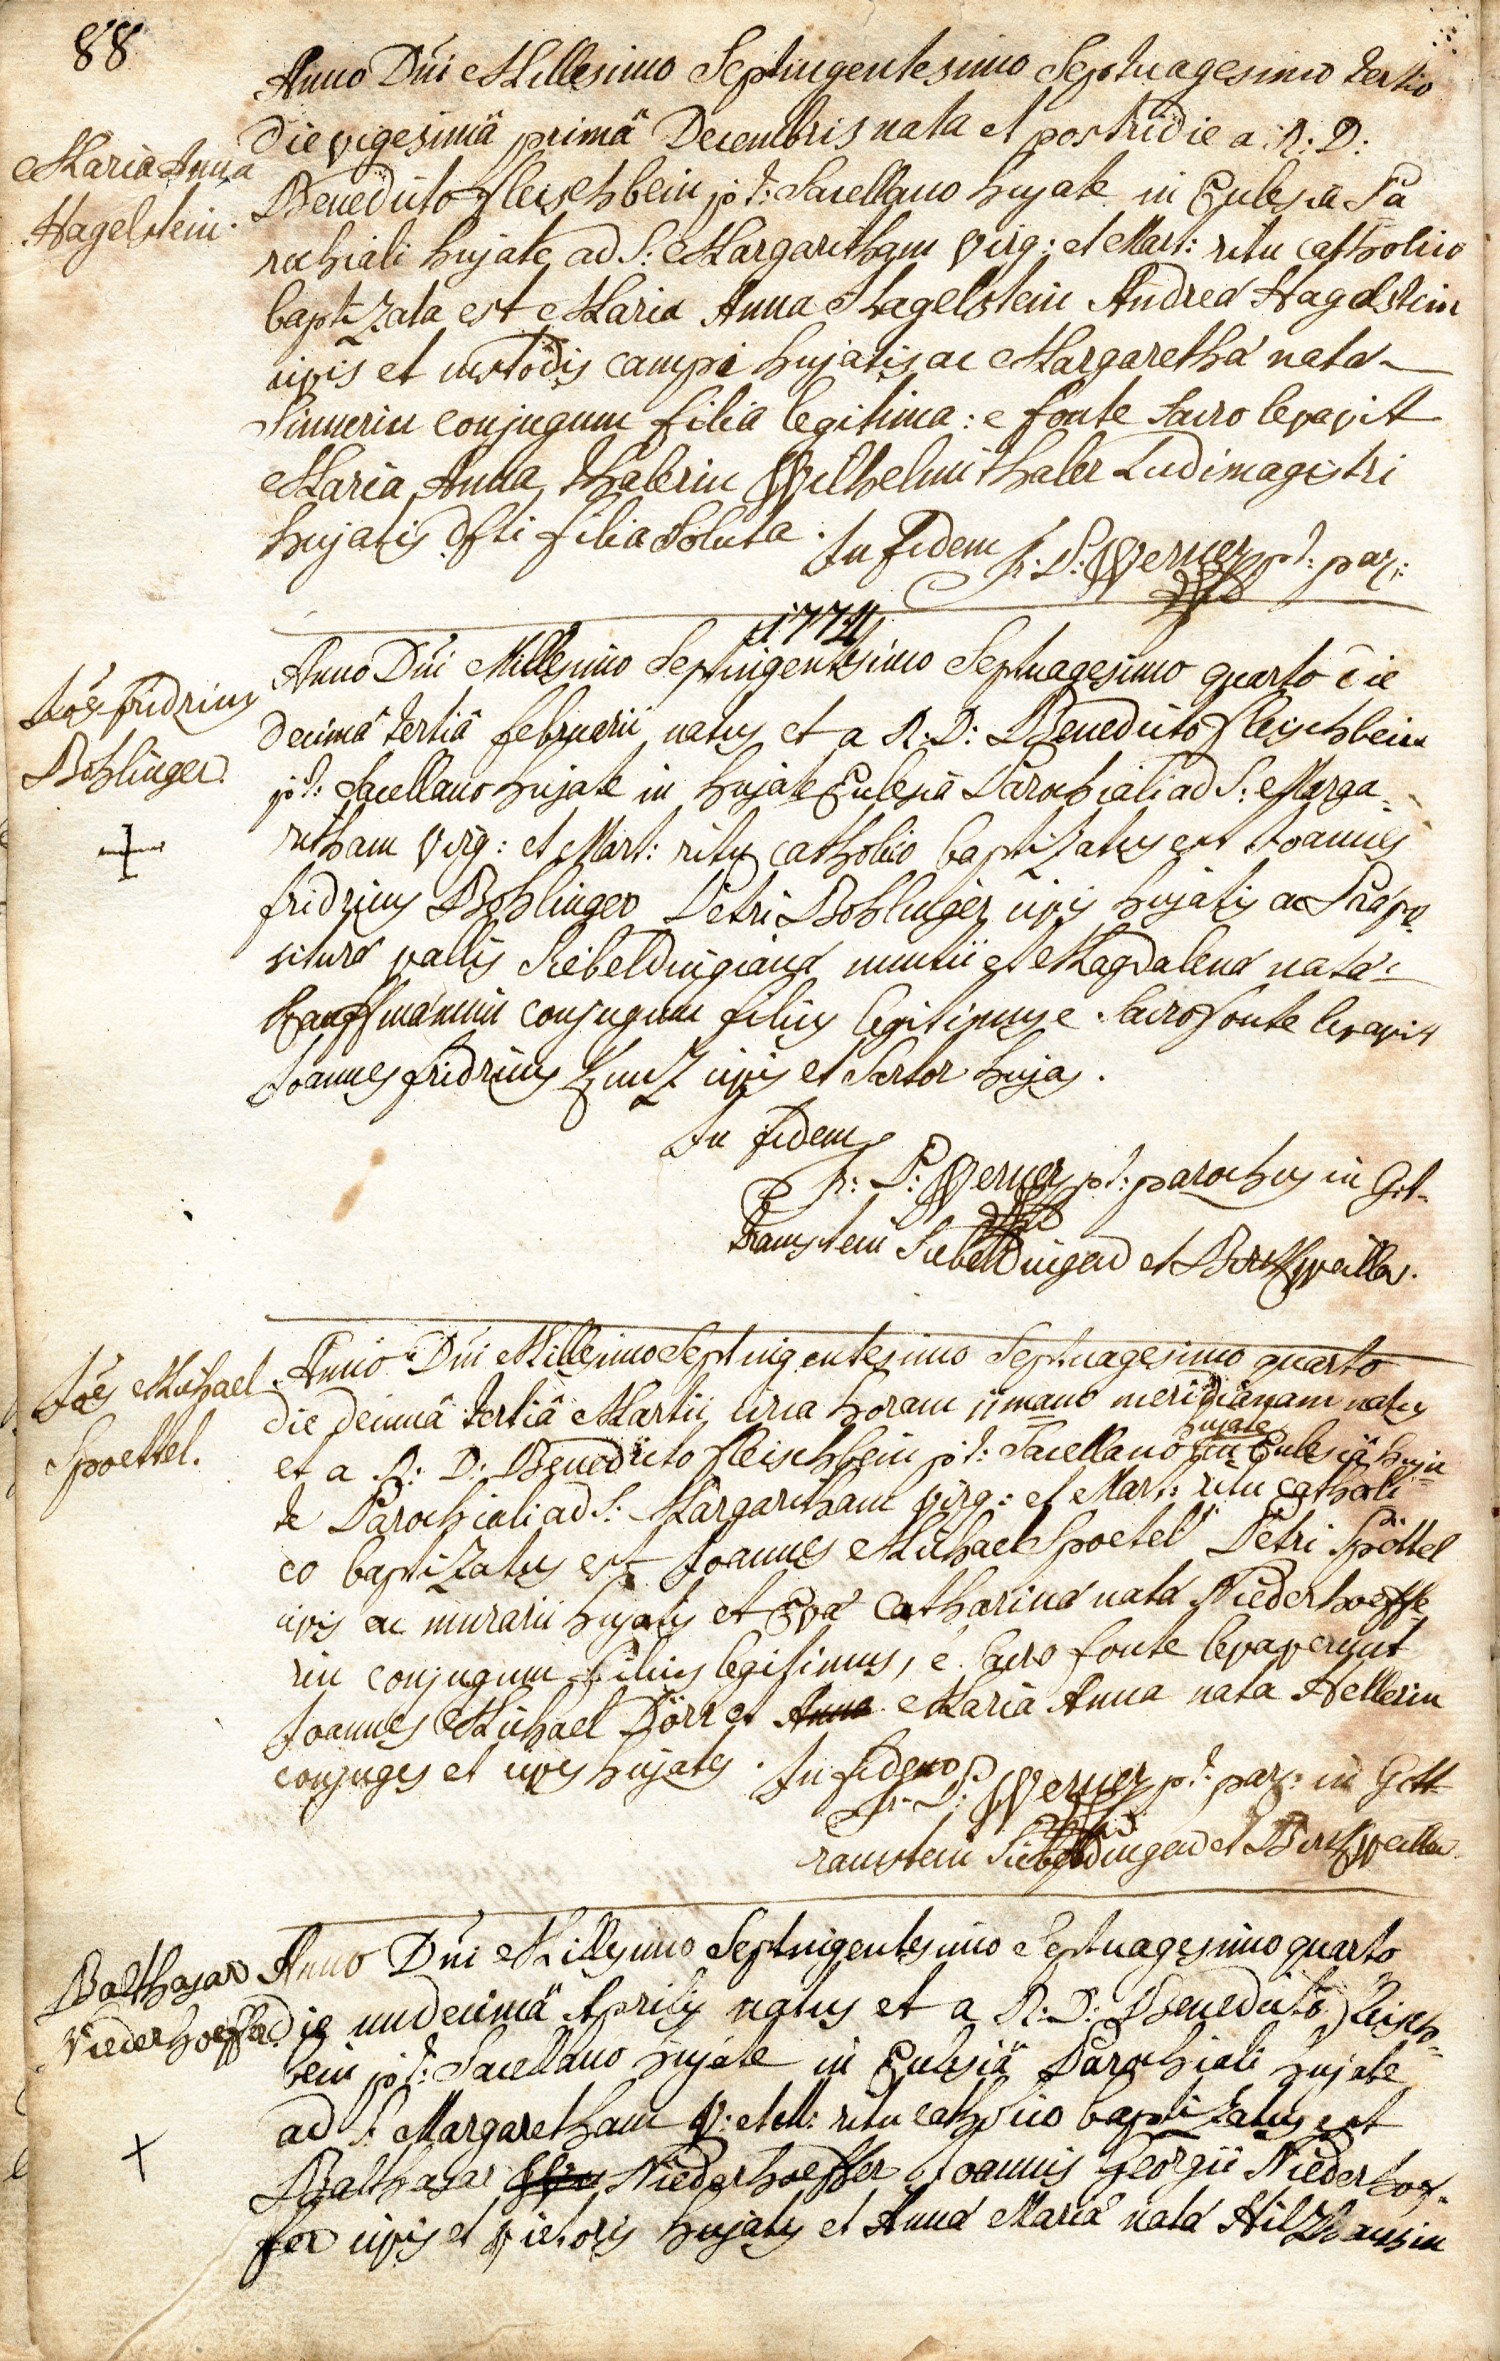 88
Anno Dñi Millesimo Septingentesimo Septuagesimo tertio
die vigesimâ primâ Decembris nata et postridie a R: D:
Maria Anna
Hagelstein.
Benedicto Fleischbein p:t: Sacellano hujate in Ecclesiâ Pa
rochiali hujate ad S: Margaritham Virg: et Mart: ritu catholico
baptizata est Maria Anna Hagelstein Andreæ Hagelstein
civis et custodis campi hujatis ac Margarethæ natæ
Sinnerin conjugum filia legitima: e fonte Sacro levavit
Maria Anna Thalerin Wilhelmi Thaler Ludimagistri
hujatis dfti filia soluta. In fidem
F: P: Werner p:t: par:
1774
Anno Dñi Millesimo Septingentesimo Septuagesimo quarto die
Joẽs fridricus
Bohlinger.
decimâ tertiâ februarii natus et a R: D: Benedicto Fleischbein
p:t: Sacellano hujate in hujate Ecclesiâ Parochiali ad S: Marga=
ritham Virg: et Mart: ritu catholico baptizatus est Joannes
fridricus Bohlinger Petri Bohlinger civis hujatis ac Præpo=
situræ vallis Siebeldingianæ nuntii et Magdalenæ natæ
Kauffmännin conjugum filius legitimus e Sacro fonte levavit
Joannes fridricus Kuntz civis et Sartor hujas.
In fidem
F: P: Werner p:t: parochus in Got=
tramstein Siebeldingen et Birckweiller.
Joẽs Michael
Spoettel.
Anno Dñi Millesimo Septingentesimo Septuagesimo quarto
die decimâ tertiâ Martii circa horam 11mam meridianam natus
et a R: D: Benedicto Fleischbein p:t: Sacellano hujate in Ecclesiâ huja=
te Parochiali ad S: Margaritham Virg: et Mart: ritu catholi=
co baptizatus est Joannes Michael Spoetel Petri Spöttel
civis ac murarii hujatis et Evæ Catharinæ natæ Niederhoeffe
rin conjugum filius legitimus, e sacro fonte levaverunt
Joannes Michael Dörr et Anna Maria Anna nata Hellerin
conjuges et cives hujates. In fidem
F: P: Werner p:t: par: in Gott
ramstein Siebeldingen et Birckweiller
Balthasar
Niederhoeffer
Anno Dñi Millesimo Septingentesimo Septuagesimo quarto
die undecimâ Aprilis natus et a R: D: Benedicto Fleisch=
bein p:t: Sacellano hujate in Ecclesiâ Parochiali hujate
ad S: Margaretham V: et M: ritu catholico baptizatus est
Balthasar Niederhoeffer Joannis Georgii Niederhoef=
fer civis et vietoris hujatis et Annæ Mariæ natæ Hiltzhausin